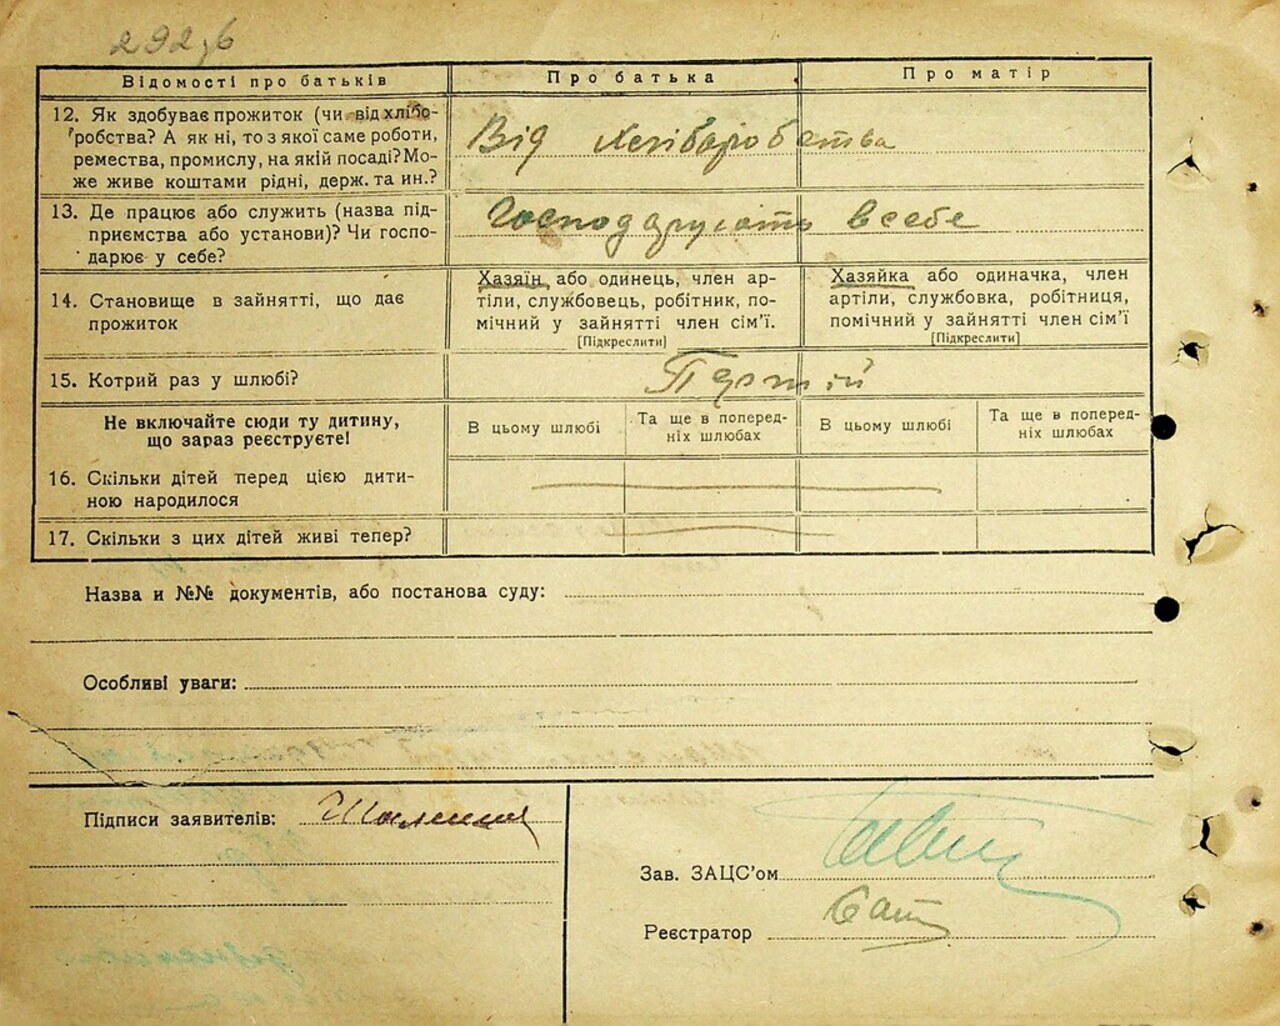 292,б
Відомості про батьків Про батька Про матір
12. Як здобуває прожиток (чи від хлібо-
робства? А як ні, то з якої саме роботи,
ремества, промислу, на якій посаді? Мо-
же живе коштами рідні, держ. та ин.?
Від хліборобства
13. Де працює або служить (назва під-
приємства або установи)? Чи госпо-
дарює у себе?
Господарують в себе
14. Становище в зайнятті, що дає
прожиток
Хазяїн, або одинець, член ар-
тіли, службовець, робітник, по-
мічний у зайнятті член сім'ї.
[Підкреслити]
Хазяйка або одиначка, член
артіли, службовка, робітниця,
помічний у зайнятті член сім'ї
[Підкреслити]
15. Котрий раз у шлюбі?
Не включайте сюди ту дитину,
що зараз реєструєте!
В цьому шлюбі
Та ще в поперед-
ніх шлюбах
В цьому шлюбі
Та ще в поперед-
ніх шлюбах
16. Скільки дітей перед цією дити-
ною народилося
17. Скільки з цих дітей живі тепер?
Назва и №№ документів, або постанова суду:
Особливі уваги:
Підписи заявителів:
Зав. ЗАЦС'ом
Реєстратор